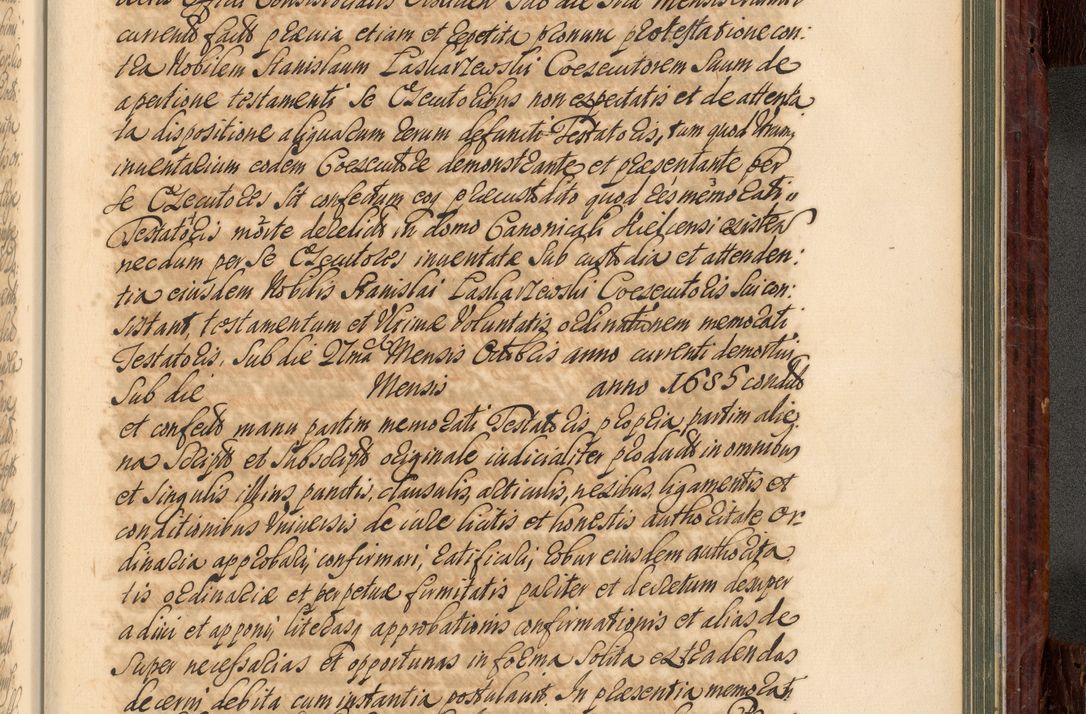 currenti facto præuia etiam et repetita p̄sonum protestatione con:
tra Nobilem Stanislaum Laskarzewski Coexecutorem suum de
apertione testamenti se Executoribus non expectatis et de attenta
ta dispositione aliquarum rerum defuncti Testatoris, tum quod Unum
inuentarium eodem Coexecutore demonstrante, et præsentante per
se Executores sit confectum eoq præcustodito quod res memorati
Testatoris morte derelictæ in domo Canonicali Kielcensi existen
necdum per se Executores inuentatæ sub custodia et attenden:
tia eiusdem Nobilis Stanislai Laskarzewski Coexecutoris sui con:
sistant, testamentum et Ultimæ Voluntatis ordinationem memorati
Testatoris, sub die 27ma Mensis Octobris anno currenti demortui
sub die Mensis anno 1685 conditũ
et confectũ manu partim memorati Testatoris propria partim alie
na scriptũ et subscriptũ originale iudicialiter productũ in omnibus
et singulis illius punctis, clausulis, articulis, nexibus, ligamentis et
conditionibus Vniuersis de iure licitis et honestis authoritate Or-
dinaria approbari, confirmari, ratificari, robur eiusdem authorita
tis ordinariæ et perpetuæ firmitatis pariter et decretum desuper
adiici et apponi, literasq approbationis confirmationis et alias de
super necessarias et opportunas in forma solita extradendas
decerni debita cum instantia postulauit. In præsentia memorati